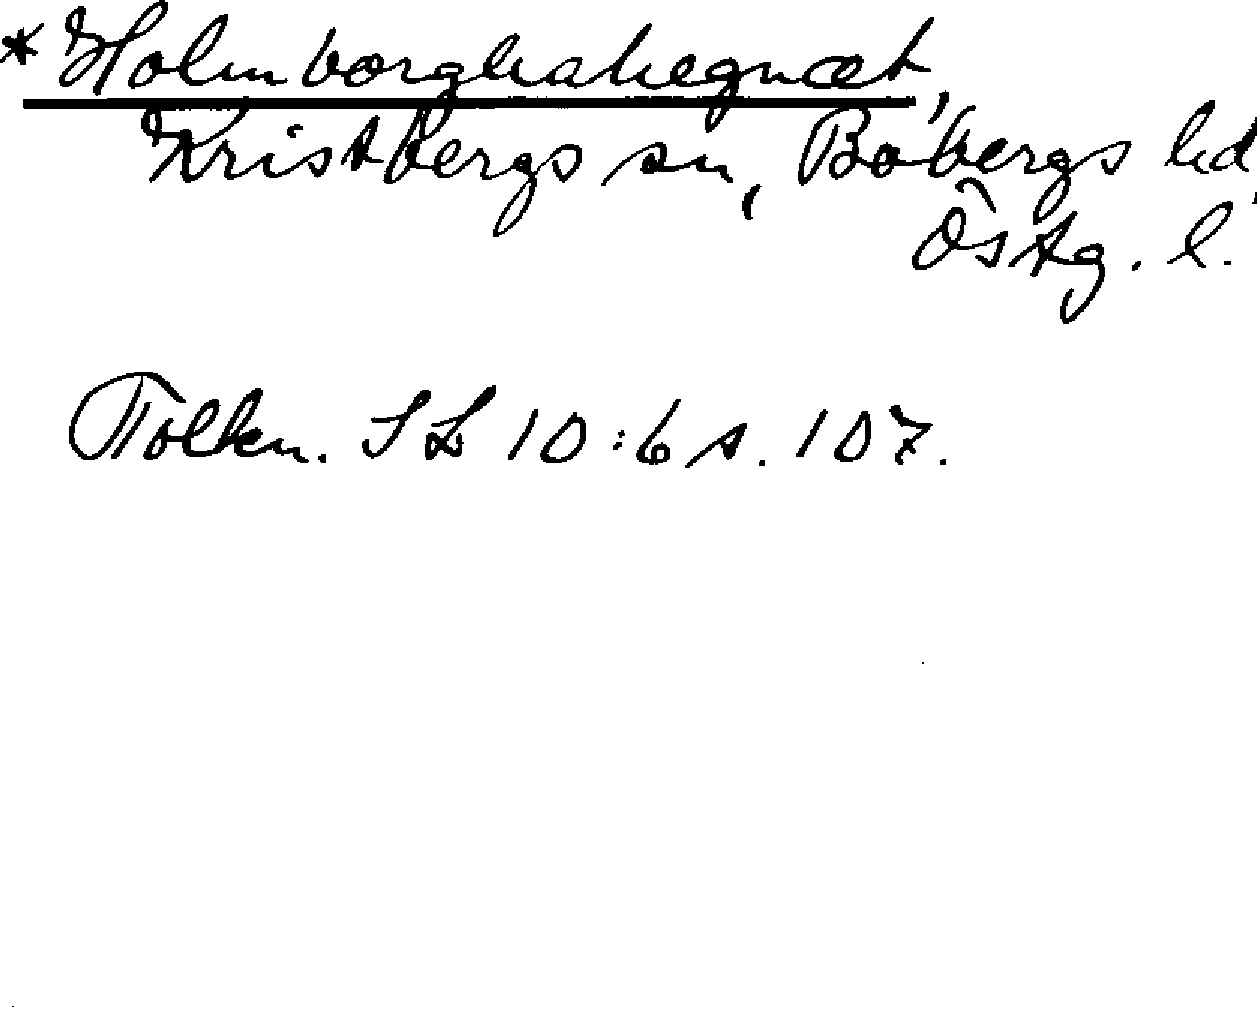 *Holmborghahegnæt,
Kristbergs sn, Bobergs hd,
Östg. l.
Tolkn. SL 10:6 s. 107.